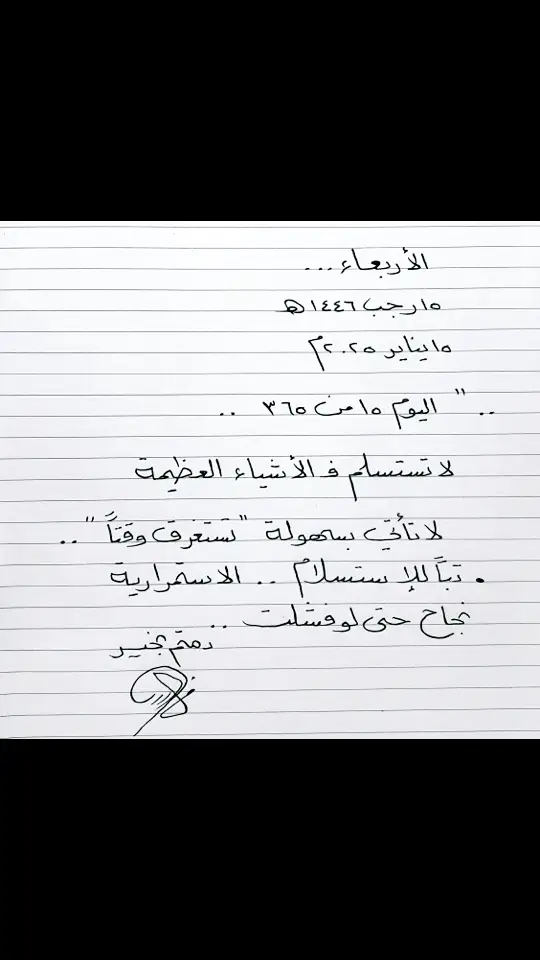 الأربعاء ...
١٥ رجب ١٤٤٦ هـ
١٥ يناير ٢٠٢٥ م
.. " اليوم ١٥ من ٣٦٥ ..
لا تستسلم فـ الأشياء العظيمة
لا تأتي بسهولة "تستغرق وقتاً" ..
• تباً للإستسلام .. الاستمرارية
نجاح حتى لو فشلت ..
دمتم بخير